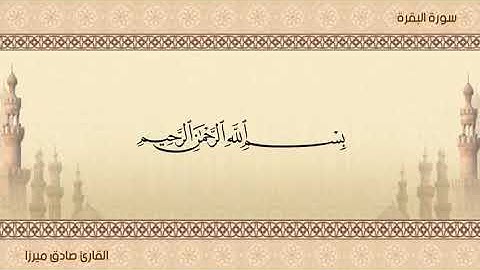 سورة البقرة
بِسْمِ ٱللَّهِ ٱلرَّحْمَٰنِ ٱلرَّحِيمِ
القارئ صادق ميرزا